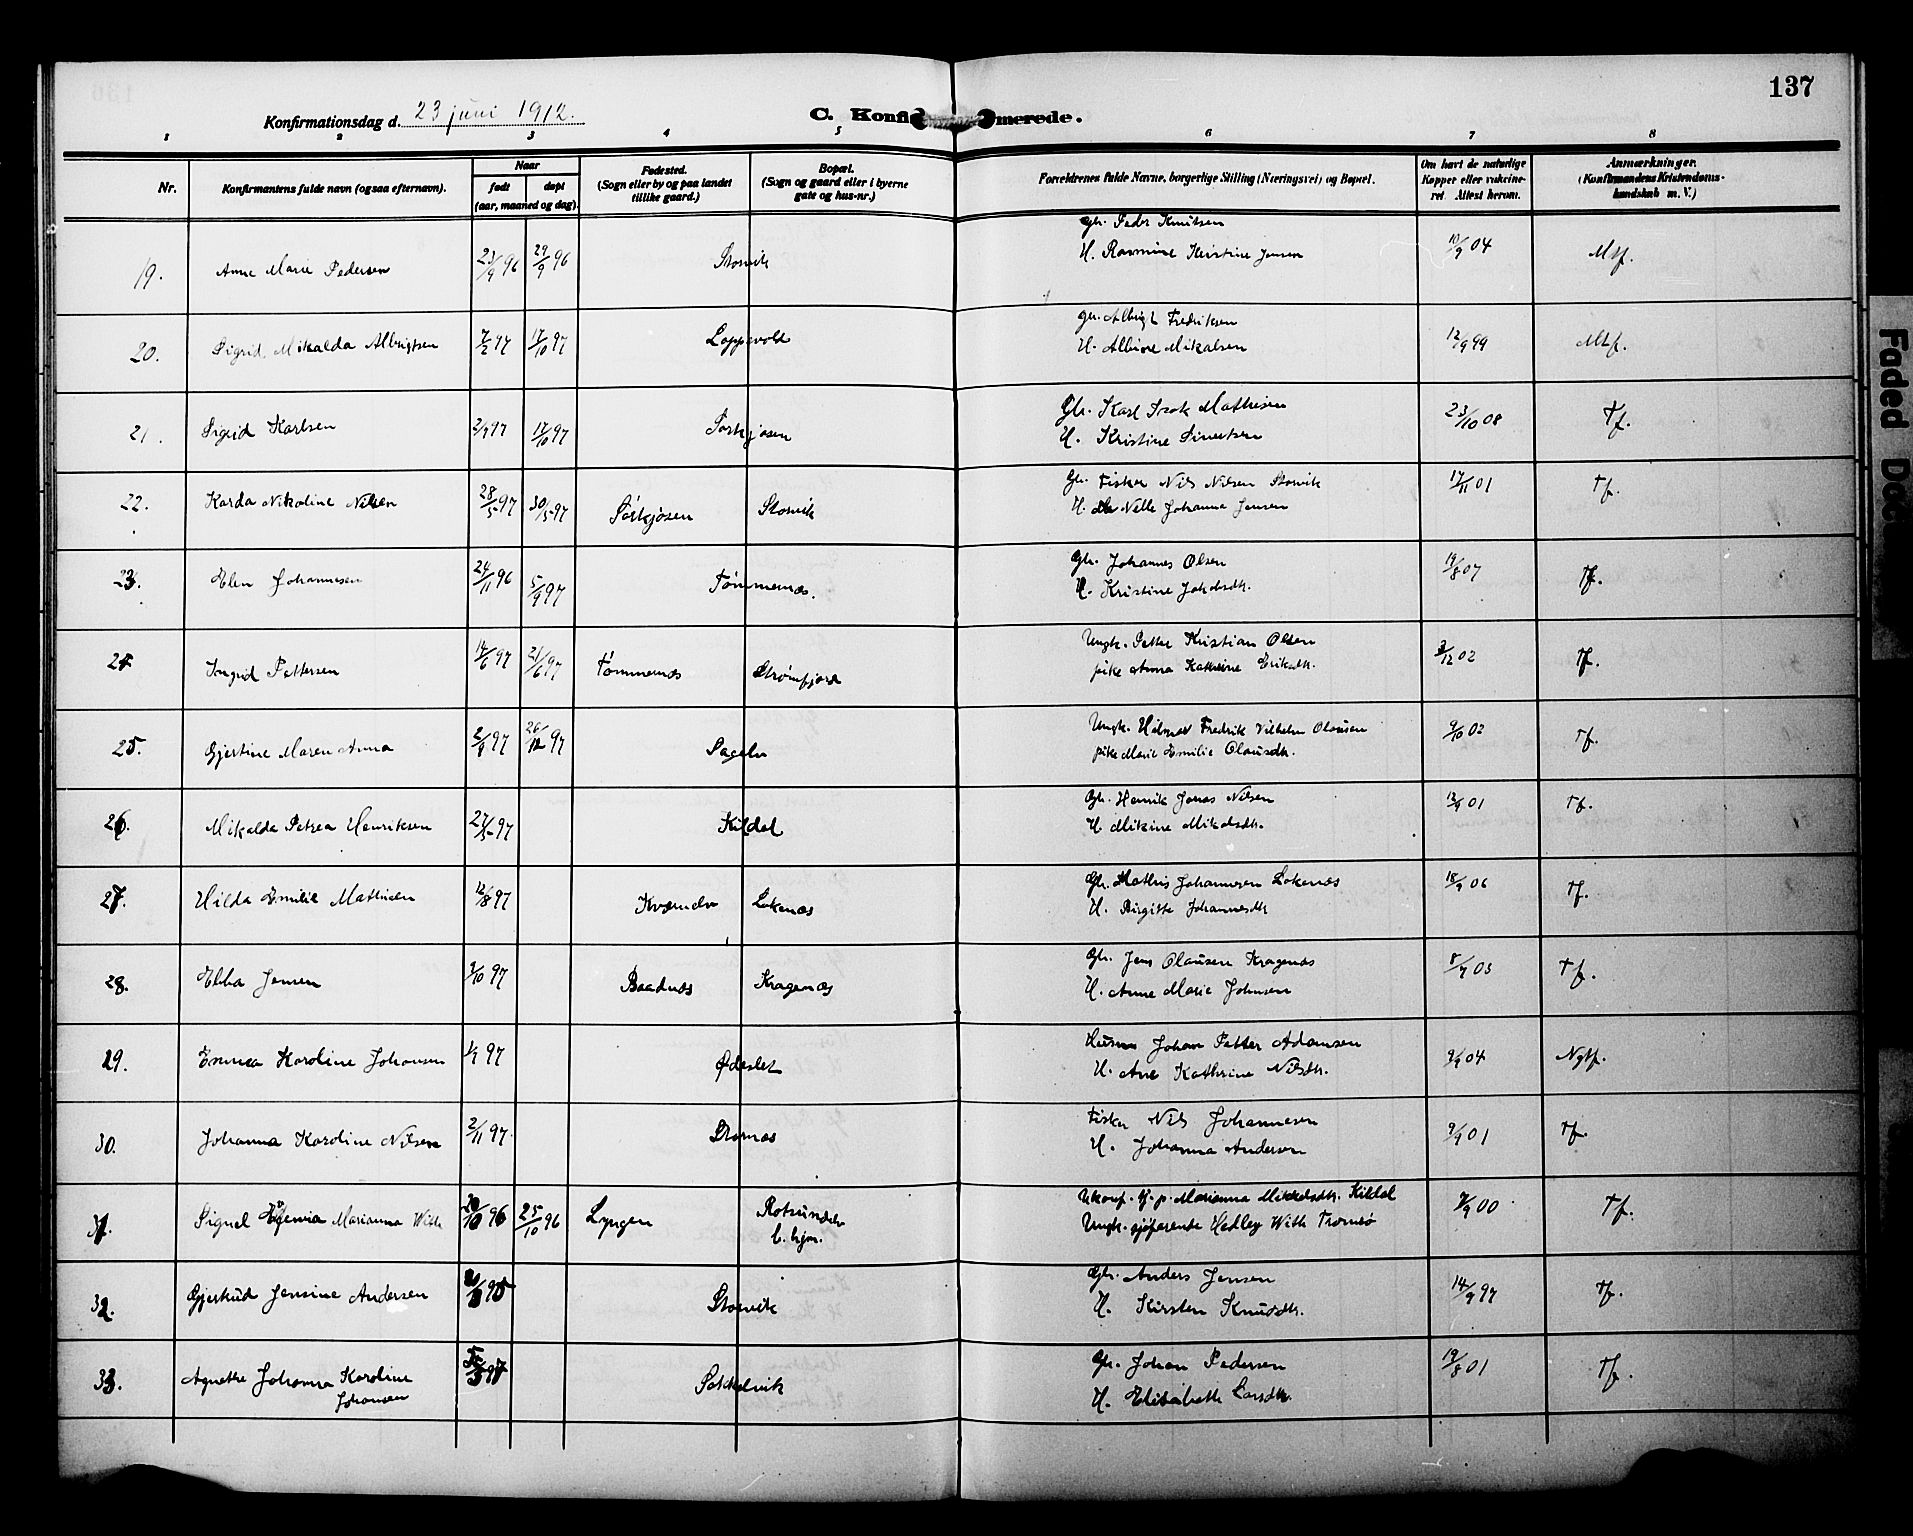 137
Konfirmationsdag d. 23 juni 1912.
C. Konfi merede.
1 2 3 4 5 6 7 8
Nr.
Konfirmantens fulde navn (ogsaa efternavn).
Naar
født døpt
(aar, maaned og dag).
Fødested.
(Sogn eller by og paa landet
tillike gaard.)
Bopæl.
(Sogn og gaard eller i byerne
gate og hus-nr.)
Forældrenes fulde Navne, borgerlige Stilling (Næringsvei) og Bopæl.
Om havt de naturlige
Kopper eller vakcine-
ret. Attest herom.
Anmærkninger.
(Konfirmandens Kristendoms-
kundskab m. V.)
Gbr. Peder Knutsen
19. Anne Marie Pedersen 23/9 96 29/9 96 Storvik H. Rasmine Kristine Jensen 10/9 04 Mtf.
Gbr. Albrigt Fredriksen
20. Sigrid Mikalda Albrigtsen 7/2 97 17/10 97 Loppevold H. Albine Mikalsen 12/9 99 Mtf.
Gbr. Karl Isak Mathisen
21. Sigrid Karlsen 2/9 97 17/10 97 Sørkjosen H. Kristine Sivertsen 23/10 08 Tf.
Gbr. Fisker Nils Nilsen Storvik
22. Karda Nikoline Nilsen 28/5 97 30/5 97 Sørkjosen Storvik H. Nelle Johanna Jensen 17/11 01 Tf.
Gbr. Johannes Olsen
23. Elen Johannesen 24/11 96 5/9 97 Tømmernes. H. Kristine Jakobsdtr. 19/8 07 Tf.
Ungk. Petter Kristian Olsen
24. Ingrid Pettersen 14/6 97 21/6 97 Tømmernes Strømfjord pike Anna Kathrine Eriksdtr. 3/12 02 Tf.
Ungk. Hilmar Fredrik Vilhelm Olausen
25. Gjertine Maren Anna 2/9 97 26/12 97 Sagelv pike Marie Emilie Olausdtr. 9/10 02 Tf.
Gbr. Henrik Jonas Nilsen
26. Mikalda Petrea Henriksen 27/5 97 Kildal H. Mikine Mikalsdtr. 12/9 01 Tf.
Gbr. Mathis Johannesen Lokenæs
27. Hilda Emilie Mathisen 12/8 97 Kvænelv Lokenæs H. Birgitte Johannesdtr 18/9 06 Tf.
Gbr. Jens Olausen Kragenæs
28. Ebba Jensen 9/10 97 Baadnæs Kragenæs H. Anne Marie Johnsen 8/9 03 Tf.
Husm Johan Petter Adamsen
29. Emma Karoline Johansen 1/9 97 Ødeslet H. Ane Kathrine Nilsdtr. 9/9 04 Ngtf.
Fisker Nils Johannesen
30. Johanna Karoline Nilsen 2/11 97 Stornæs H. Johanna Andersen 9/9 01 Tf.
Ukonf. Marianna Mikkelsdtr. Kildal
31. Signel Marianna With 20/10 96 25/10 96 Lyngen Rotsundelv Ungk. sjøfarende Hedley With Tromsø 9/9 00 Tf.
Gbr. Anders Jensen
32. Gjertrud Jensine Andersen Storvik H. Kirsten Knudsdtr. 14/9 97 Tf.
Gbr. Johan Pedersen
33. Agnethe Johanna Karoline
Johansen Sokkelvik H. Elisabeth Larsdtr. 19/8 01 Tf.
Faded Doc